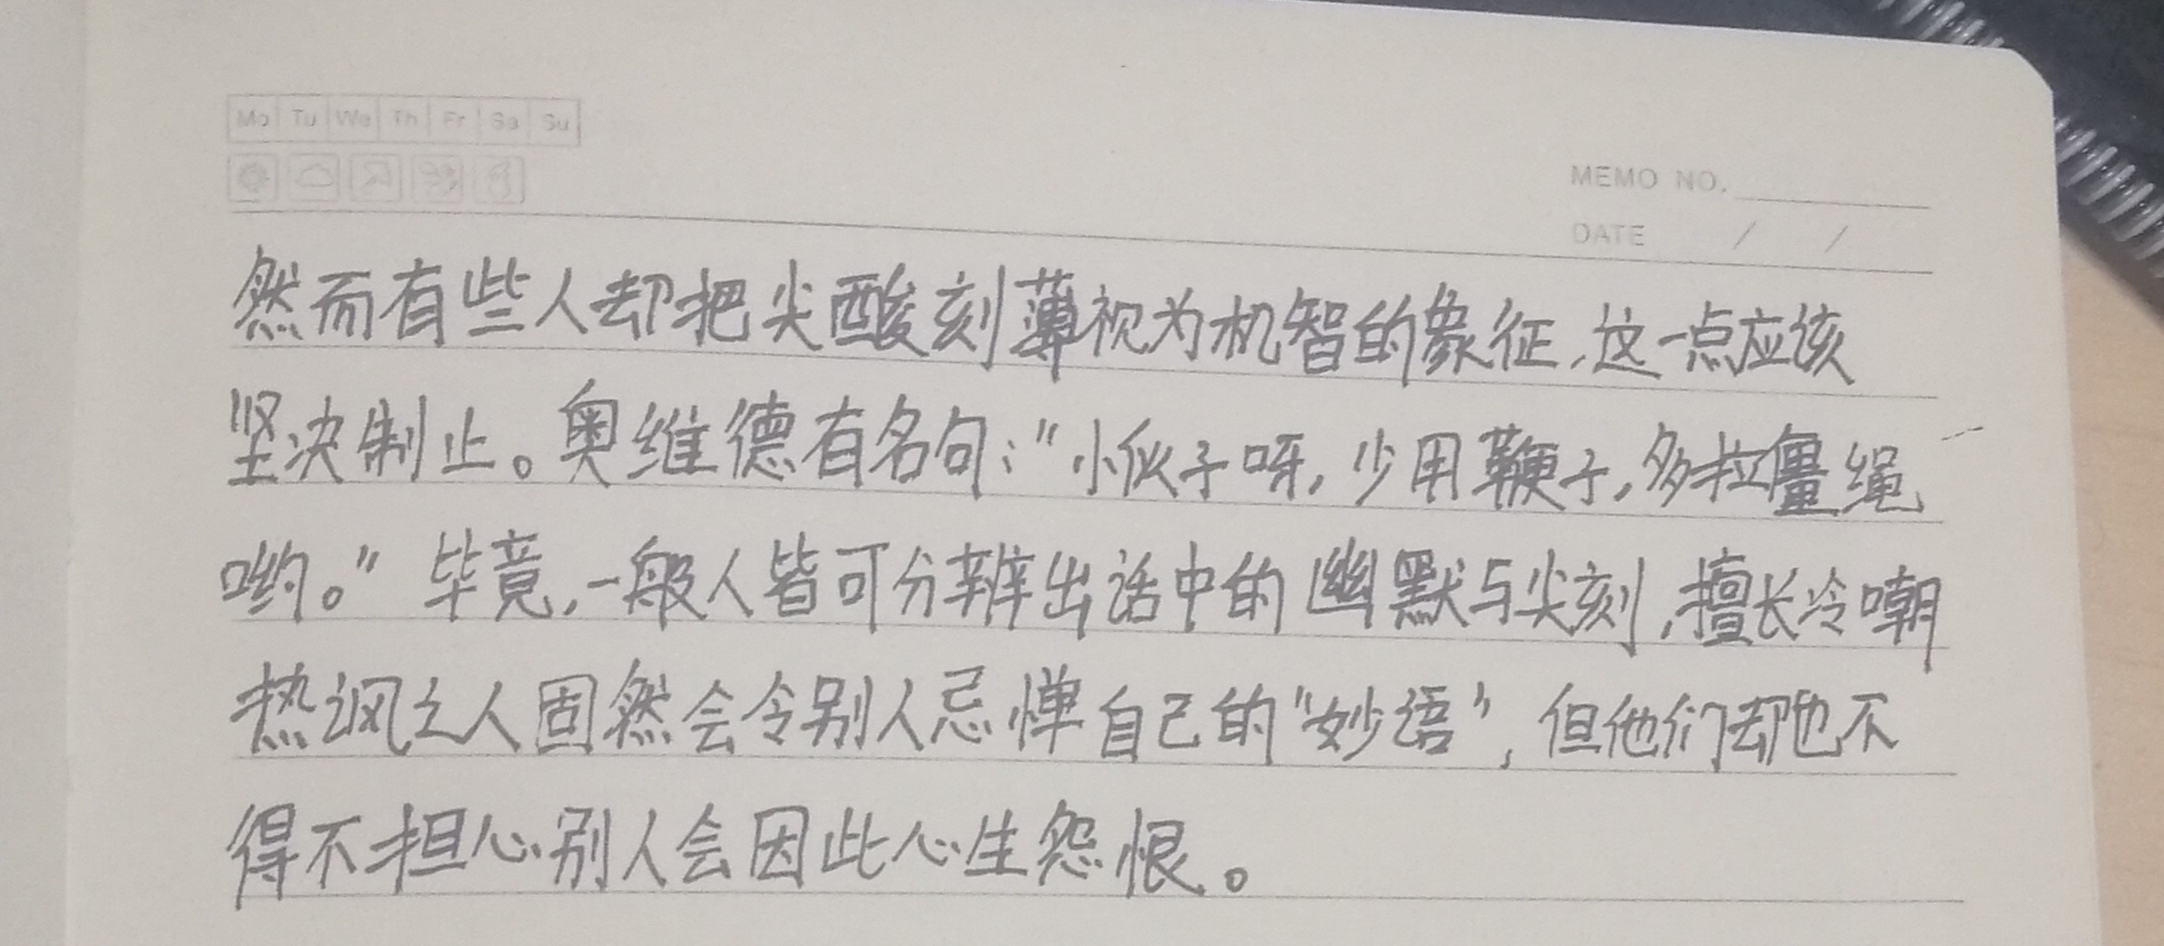 Mo Tu We Th Fr Sa Su
MEMO NO.
DATE / /
然而有些人却把尖酸刻薄视为机智的象征,这一点应该
坚决制止。奥维德有名句:"小伙子呀,少用鞭子,多拉僵绳
哟。"毕竟,一般人皆可分辨出话中的幽默与尖刻,擅长冷嘲
热讽之人固然会令别人忌惮自己的"妙语",但他们却也不
得不担心别人会因此心生怨恨。